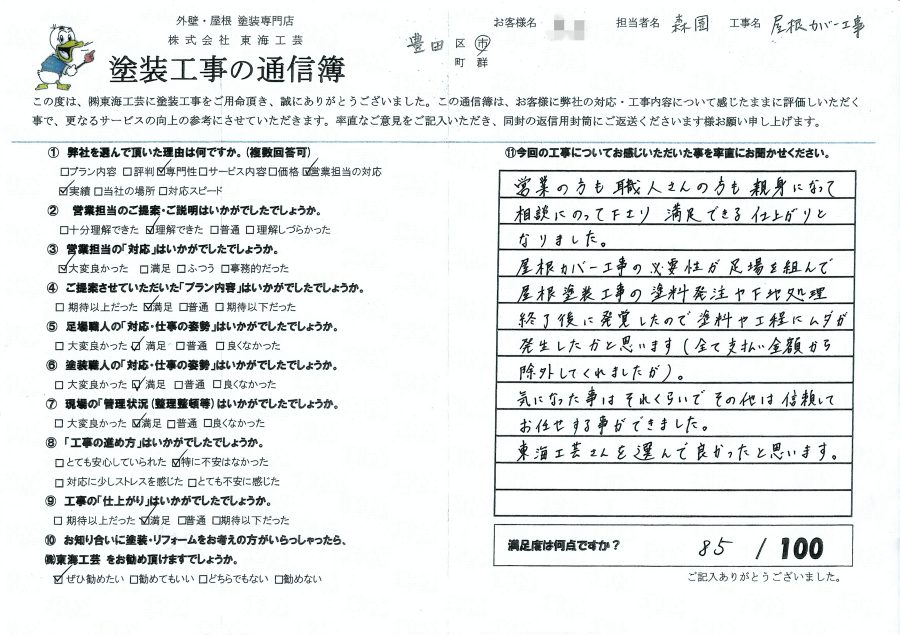 外壁・屋根 塗装専門店
株式会社 東海工芸
塗装工事の通信簿
豊田 区 市
町 群
お客様名 担当者名 森園 工事名 屋根カバー工事
この度は、㈱東海工芸に塗装工事をご用命頂き、誠にありがとうございました。この通信簿は、お客様に弊社の対応・工事内容について感じたままに評価しいただく
事で、更なるサービスの向上の参考にさせていただきます。率直なご意見をご記入いただき、同封の返信用封筒にご返送くださいます様お願い申し上げます。
① 弊社を選んで頂いた理由は何ですか。(複数回答可)
□プラン内容 □評判 ☑専門性 □サービス内容 □価格 ☑営業担当の対応
☑実績 □当社の場所 □対応スピード
② 営業担当のご提案・ご説明はいかがでしたでしょうか。
□十分理解できた ☑理解できた □普通 □理解しづらかった
③ 営業担当の「対応」はいかがでしたでしょうか。
☑大変良かった □満足 □ふつう □事務的だった
④ ご提案させていただいた「プラン内容」はいかがでしたでしょうか。
□期待以上だった ☑満足 □普通 □期待以下だった
⑤ 足場職人の「対応・仕事の姿勢」はいかがでしたでしょうか。
□大変良かった ☑満足 □普通 □良くなかった
⑥ 塗装職人の「対応・仕事の姿勢」はいかがでしたでしょうか。
□大変良かった ☑満足 □普通 □良くなかった
⑦ 現場の「管理状況(整理整頓等)はいかがでしたでしょうか。
□大変良かった ☑満足 □普通 □良くなかった
⑧ 「工事の進め方」はいかがでしたでしょうか。
□とても安心していられた ☑特に不安はなかった
□対応に少しストレスを感じた □とても不安に感じた
⑨ 工事の「仕上がり」はいかがでしたでしょうか。
□期待以上だった ☑満足 □普通 □期待以下だった
⑩ お知り合いに塗装・リフォームをお考えの方がいらっしゃったら、
㈱東海工芸 をお勧め頂けますでしょうか。
☑ぜひ勧めたい □勧めてもいい □どちらでもない □勧めない
⑪今回の工事についてお感じいただいた事を率直にお聞かせください。
営業の方も職人さんの方も親身になって
相談にのって下さり 満足できる仕上がりと
なりました。
屋根カバー工事の必要性が足場を組んで
屋根塗装工事の塗料発注や下地処理
終了後に発覚したので塗料や工程にムダが
発生したかと思います(全て支払い金額から
除外してくれましたが)。
気になった事はそれくらいでその他は信頼して
お任せする事ができました。
東海工芸さんを選んで良かったと思います。
満足度は何点ですか? 85 / 100
ご記入ありがとうございました。